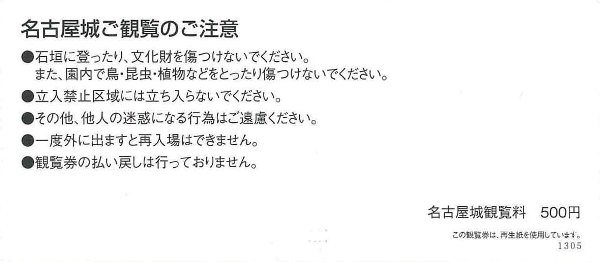 名古屋城ご観覧のご注意
●石垣に登ったり、文化財を傷つけないでください。
また、園内で鳥・昆虫・植物などをとったり傷つけないでください。
●立入禁止区域には立ち入らないでください。
●その他、他人の迷惑になる行為はご遠慮ください。
●一度外に出ますと再入場はできません。
●観覧券の払い戻しは行っておりません。
名古屋城観覧料　500円
この観覧券は、再生紙を使用しています。
1305